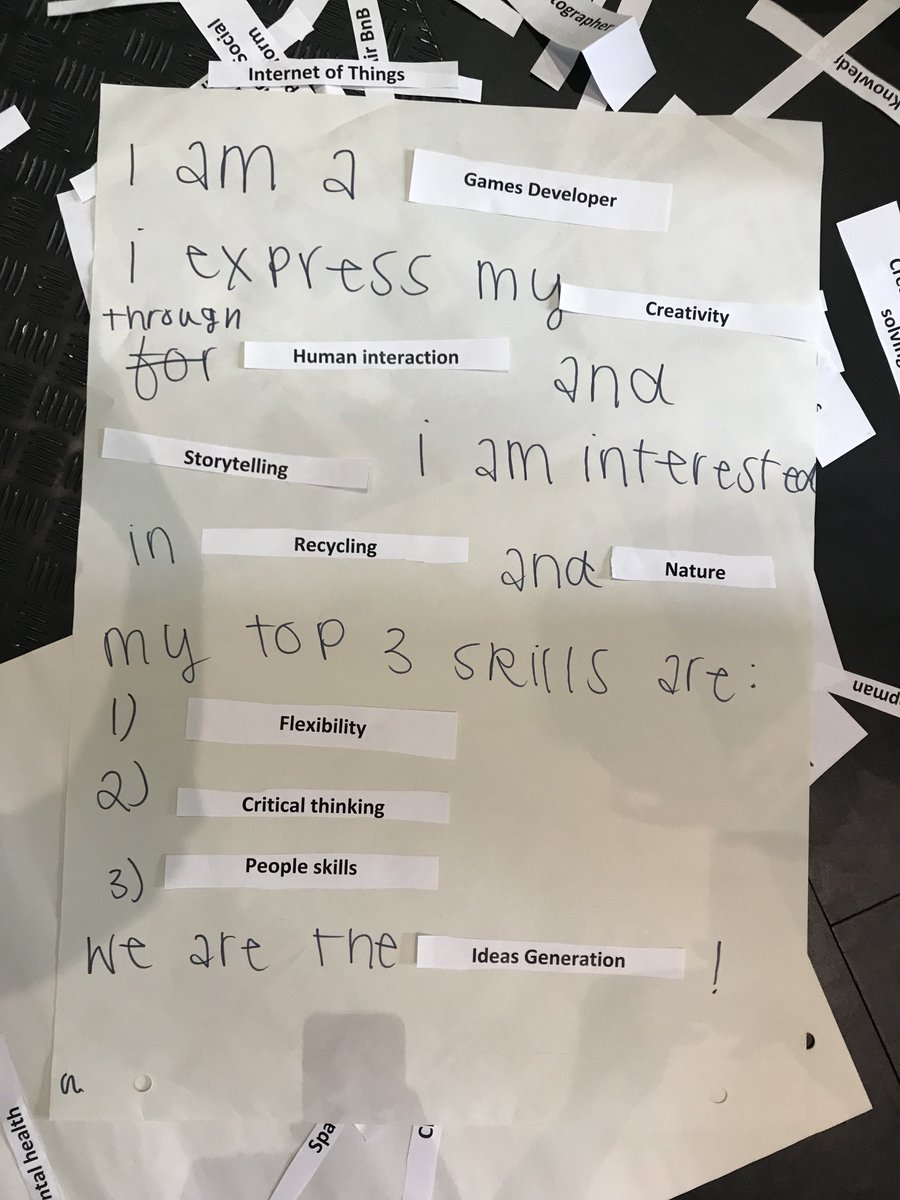 Social
form
ir BnB
tographer
Knowledg
Internet of Things
I am a Games Developer
i express my Creativity
through
for Human interaction and
Storytelling i am interested
in Recycling and Nature
my top 3 skills are:
1) Flexibility
2) Critical thinking
3) People skills
We are the Ideas Generation !
solving
pman
ntal health
Spa